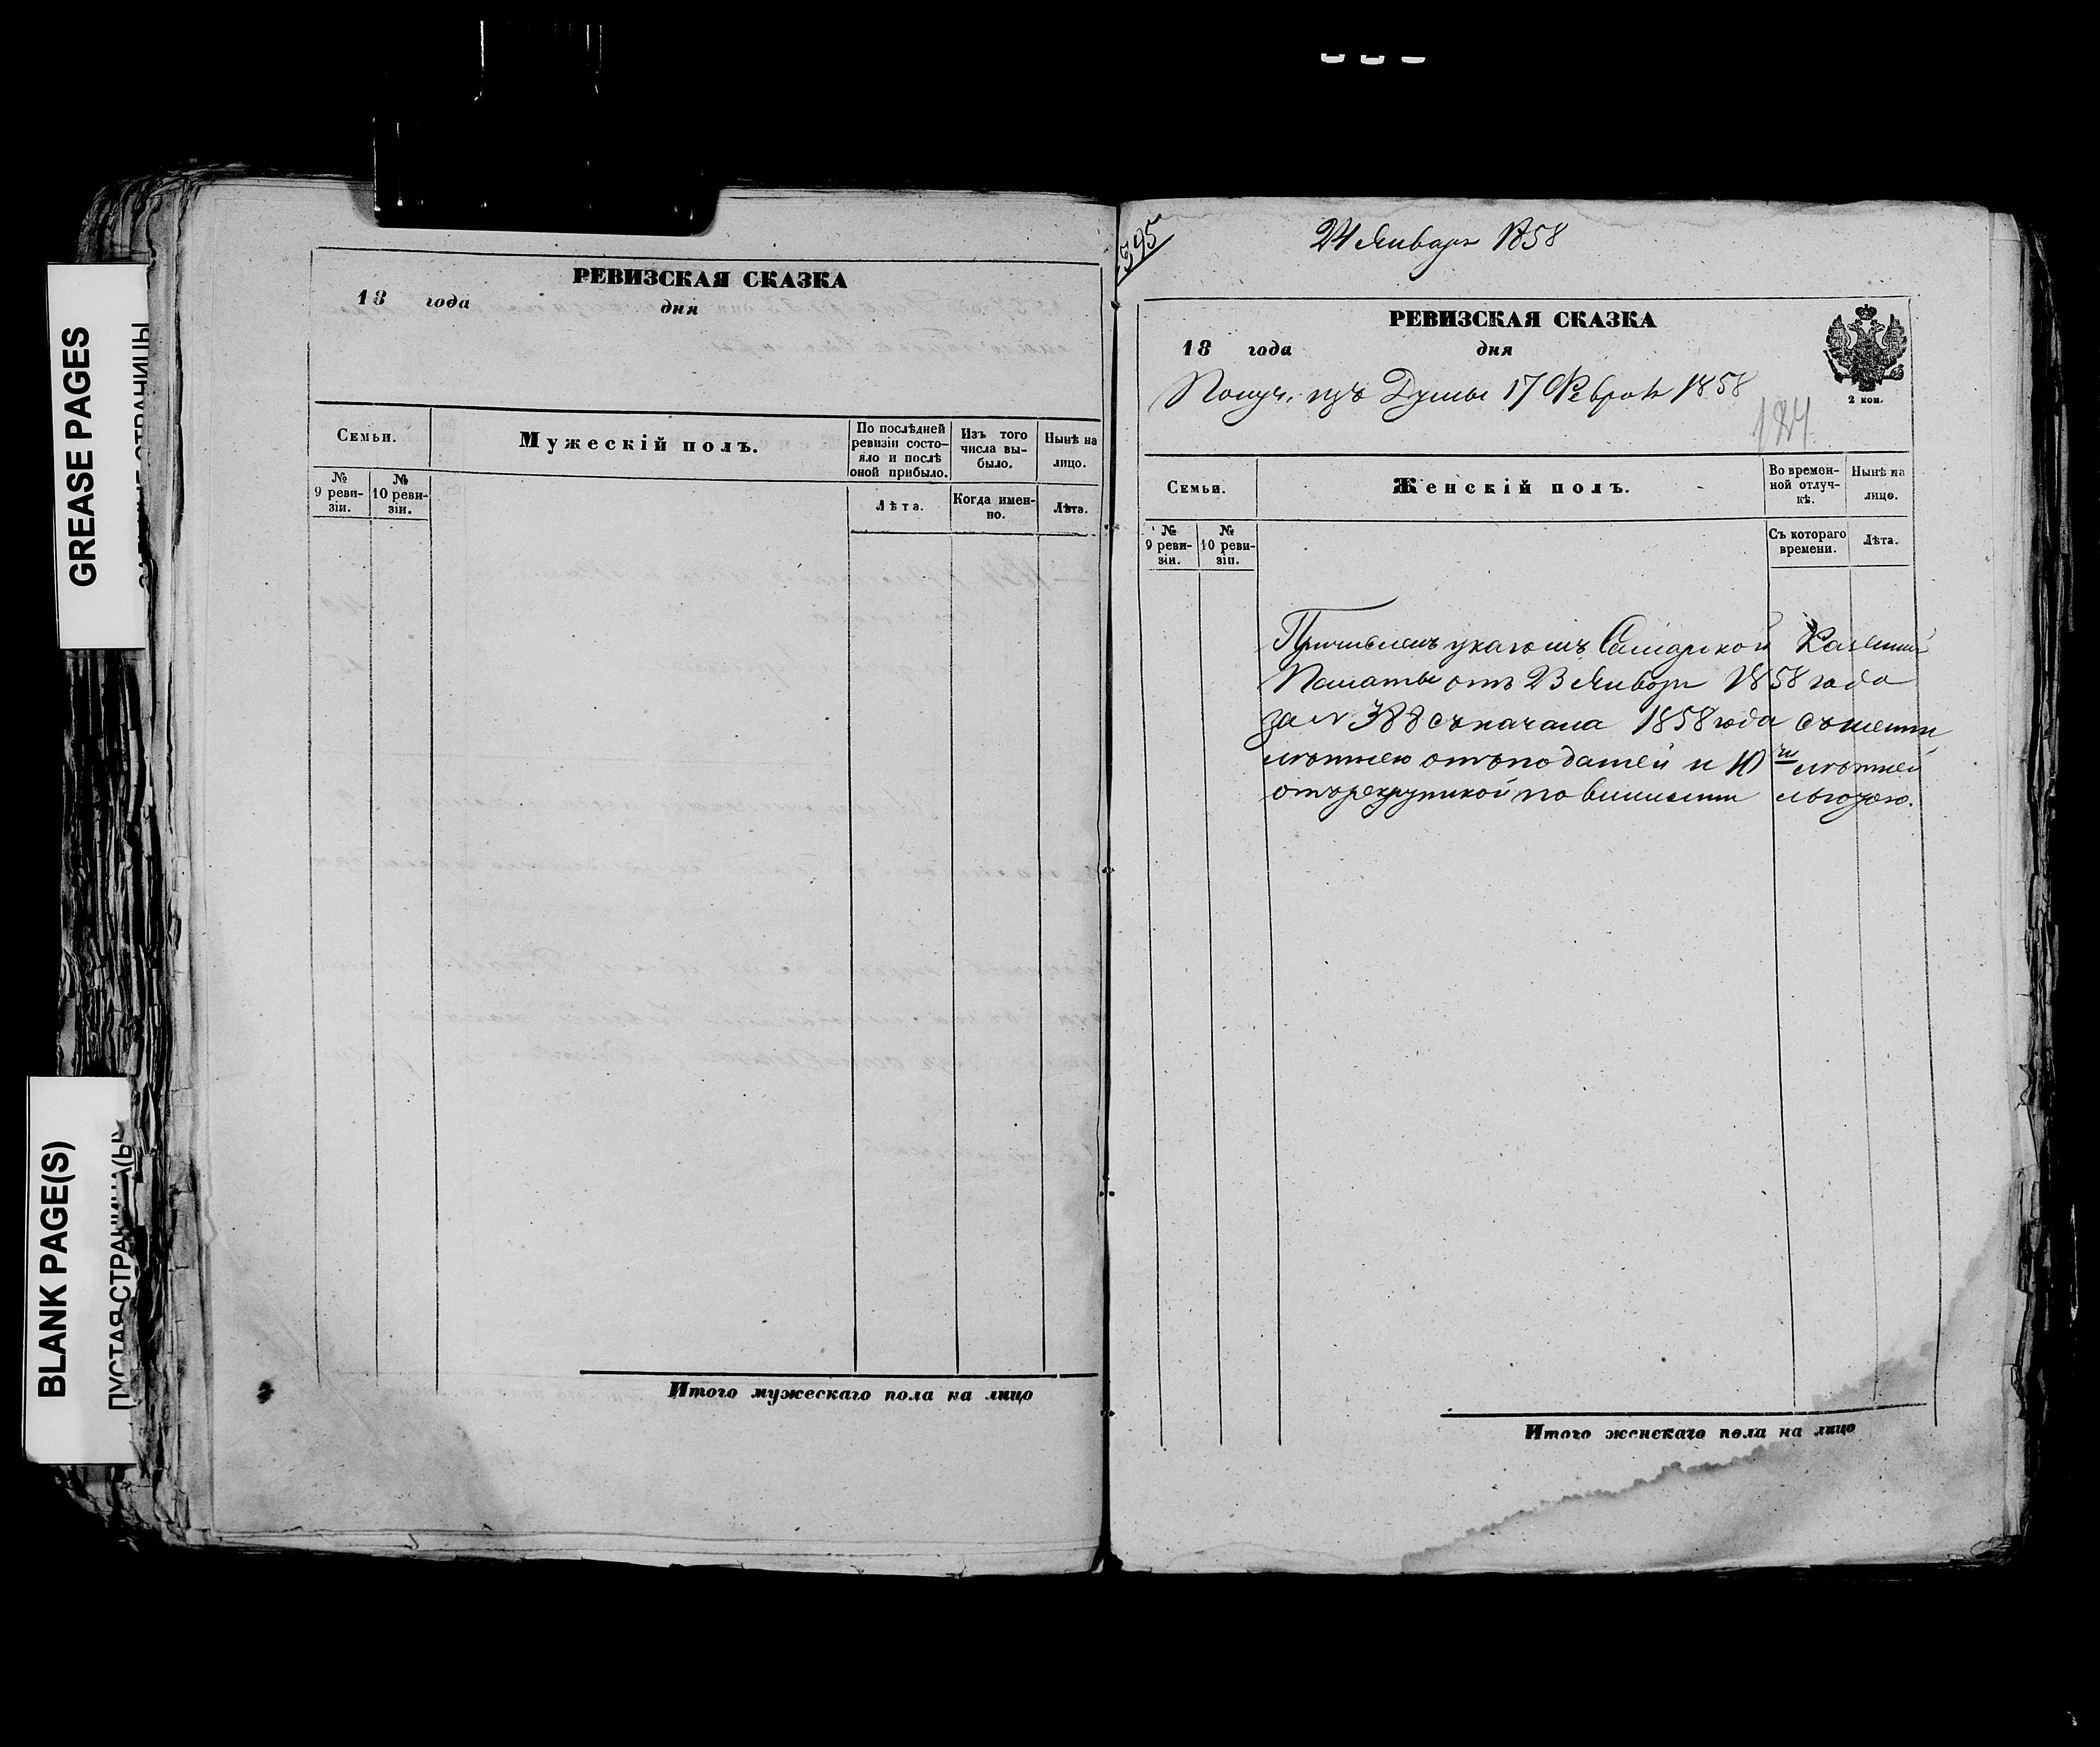 GREASE PAGES
BLANK PAGE(S)
ПУСТАЯ СТРАНИЦА(Ы)
РЕВИЗСКАЯ СКАЗКА
18 года дня
Семьи.
Мужескiй полъ.
По послѣдней ревизiи состояло и послѣ оной прибыло.
Изъ того числа выбыло.
Нынѣ на лицо.
№ 9 ревизiи.
№ 10 ревизiи.
Лѣта.
Когда именно.
Лѣта.
Итого мужескаго пола на лицо
395
24 Января 1858
РЕВИЗСКАЯ СКАЗКА
18 года дня
2 коп.
Получ. изъ Думы 17 Февраля 1858
184
Семьи.
Женскiй полъ.
Во временной отлучкѣ.
Нынѣ на лицо.
№ 9 ревизiи.
№ 10 ревизiи.
Съ котораго времени.
Лѣта.
Причисленъ указомъ Самарской Казенной
Палаты отъ 23 Января 1858 года
за N 388 съ начала 1858 года съ шести
лѣтнею отъ податей и 10ти лѣтней
отъ рекрутской повинности льготою.
Итого женскаго пола на лицо